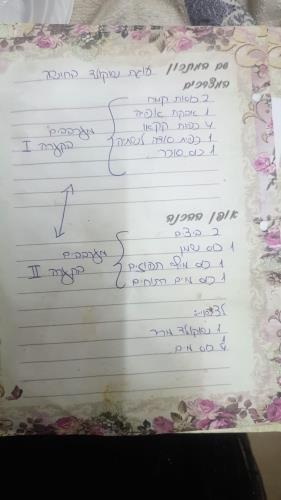 שם המתכון עוגת שוקולד בחושה
המצרכים
2 כוסות קמח
1 אבקת אפיה
4 כפות קקאו
1 כפית סודה לשתיה
1 כוס סוכר
מערבבים
בקערה I
אופן ההכנה
2 ביצים
1 כוס שמן
1 כוס מיץ תפוזים
1 כוס מים רותחים
מערבבים
בקערה II
לציפוי:
1 שוקולד מריר
כוס מים